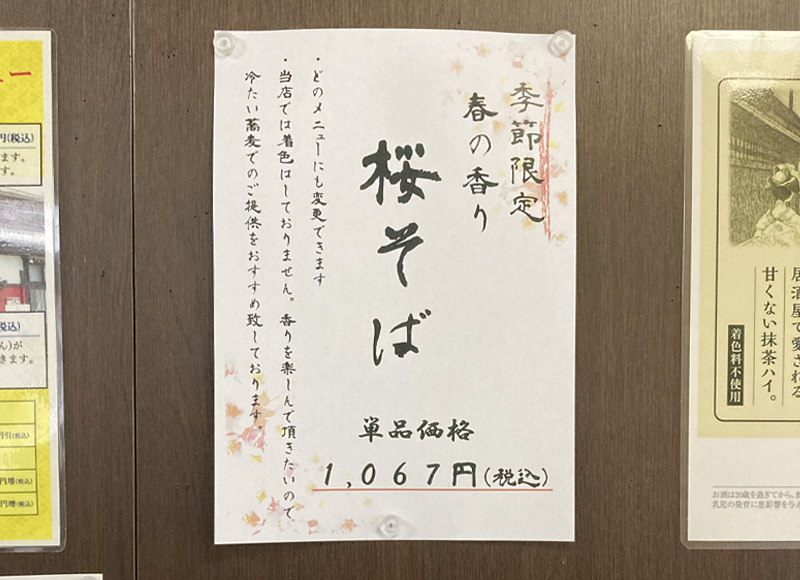 季節限定
春の香り
桜そば
・どのメニューにも変更できます
・当店では着色はしておりません。香りを楽しんで頂きたいので
冷たい蕎麦でのご提供をおすすめ致しております。
単品価格
1,067円(税込)
居酒屋で愛される
甘くない抹茶ハイ。
着色料不使用
お酒は20歳を過ぎてから。
乳児の発育に悪影響を与え
円(税込)
ます。
す。
税込)
ん)が
きます。
円引(税込)
円増(税込)
円増(税込)